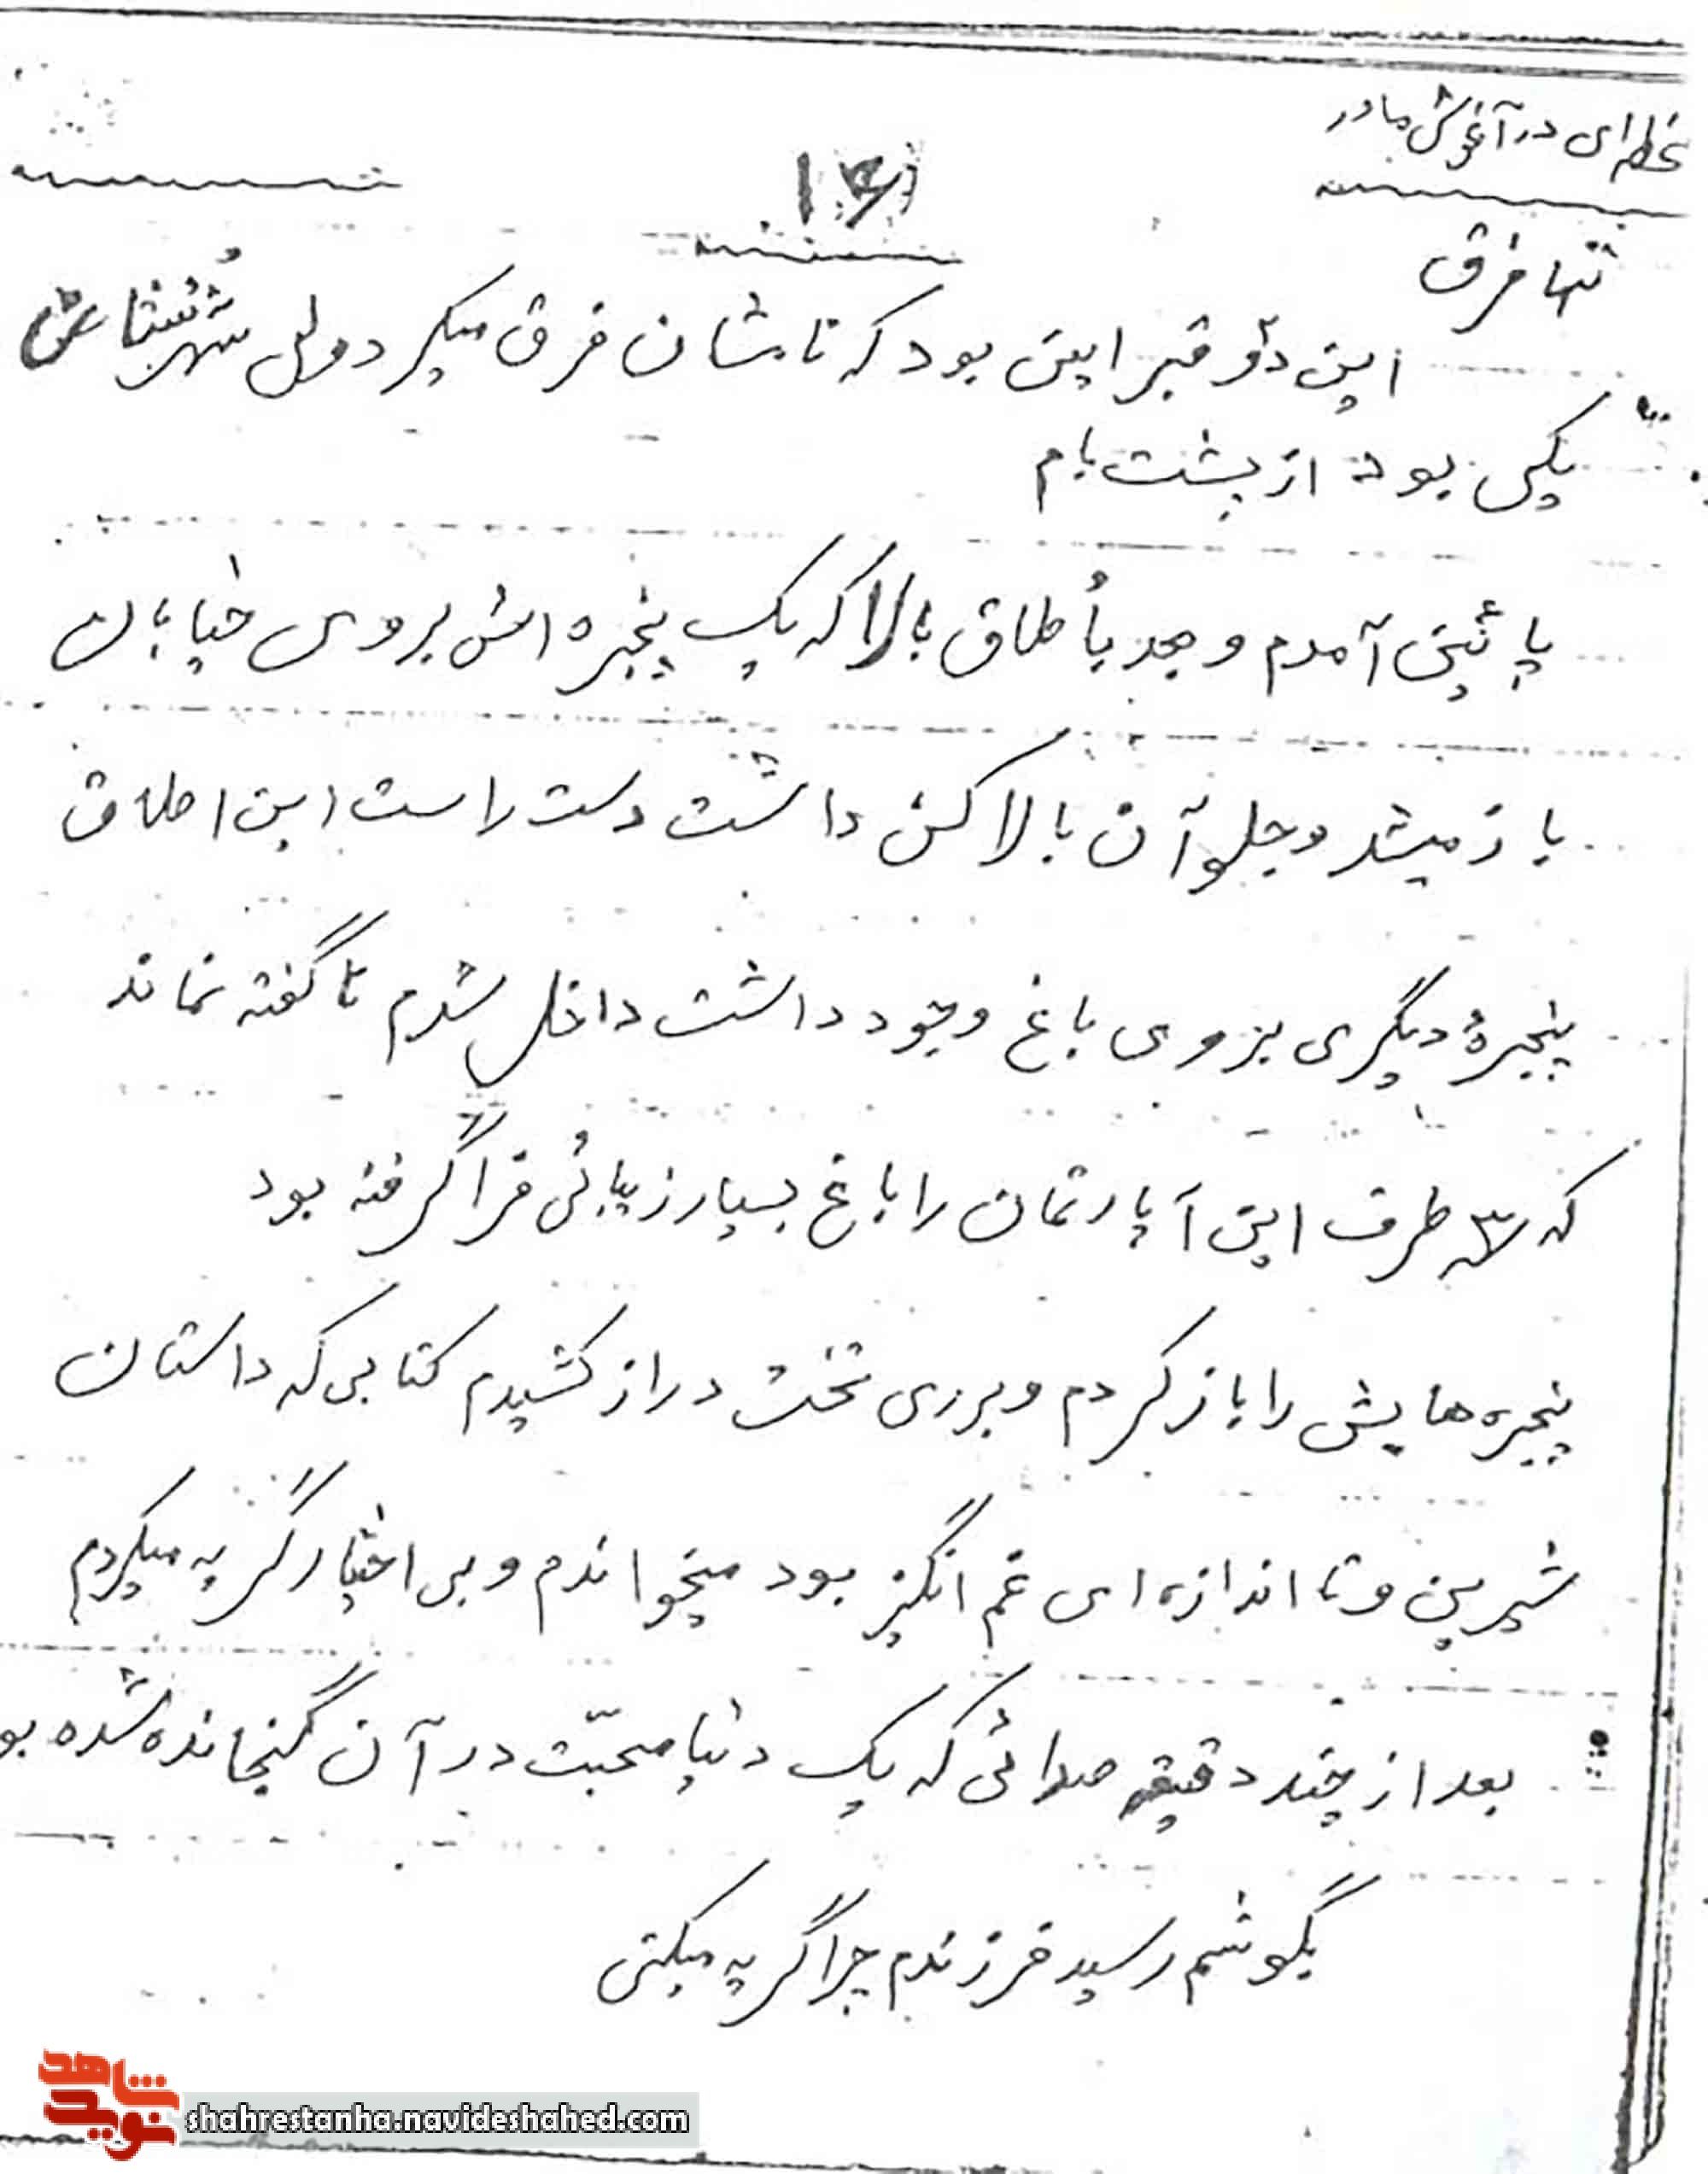 لحظه‌ای در آغوش مادر
۱۶
تنها فرق
این دو قبر این بود که نامشان فرق میکرد ولی شهرستانش
یکی بود از پشت بام
پائین آمدم و بعد بأطاق بالا که یک پنجره اش بروی خیابان
باز میشد و جلو آن بالاکن داشت دست راست این اطاق
پنجرهٔ دیگری بروی باغ وجود داشت داخل شدم ناگفته نماند
که سه طرف این آپارتمان را باغ بسیار زیبائی فراگرفته بود
پنجره هایش را باز کردم و برروی تخت دراز کشیدم کتابی که داستان
شیرین و تا اندازه ای غم انگیز بود میخواندم و بی اختیار گریه میکردم
بعد از چند دقیقه صدائی که یک دنیا محبّت در آن گنجانده شده بو
بگوشم رسید فرزندم چرا گریه میکنی
نوید شاهد
shahrestanha.navideshahed.com